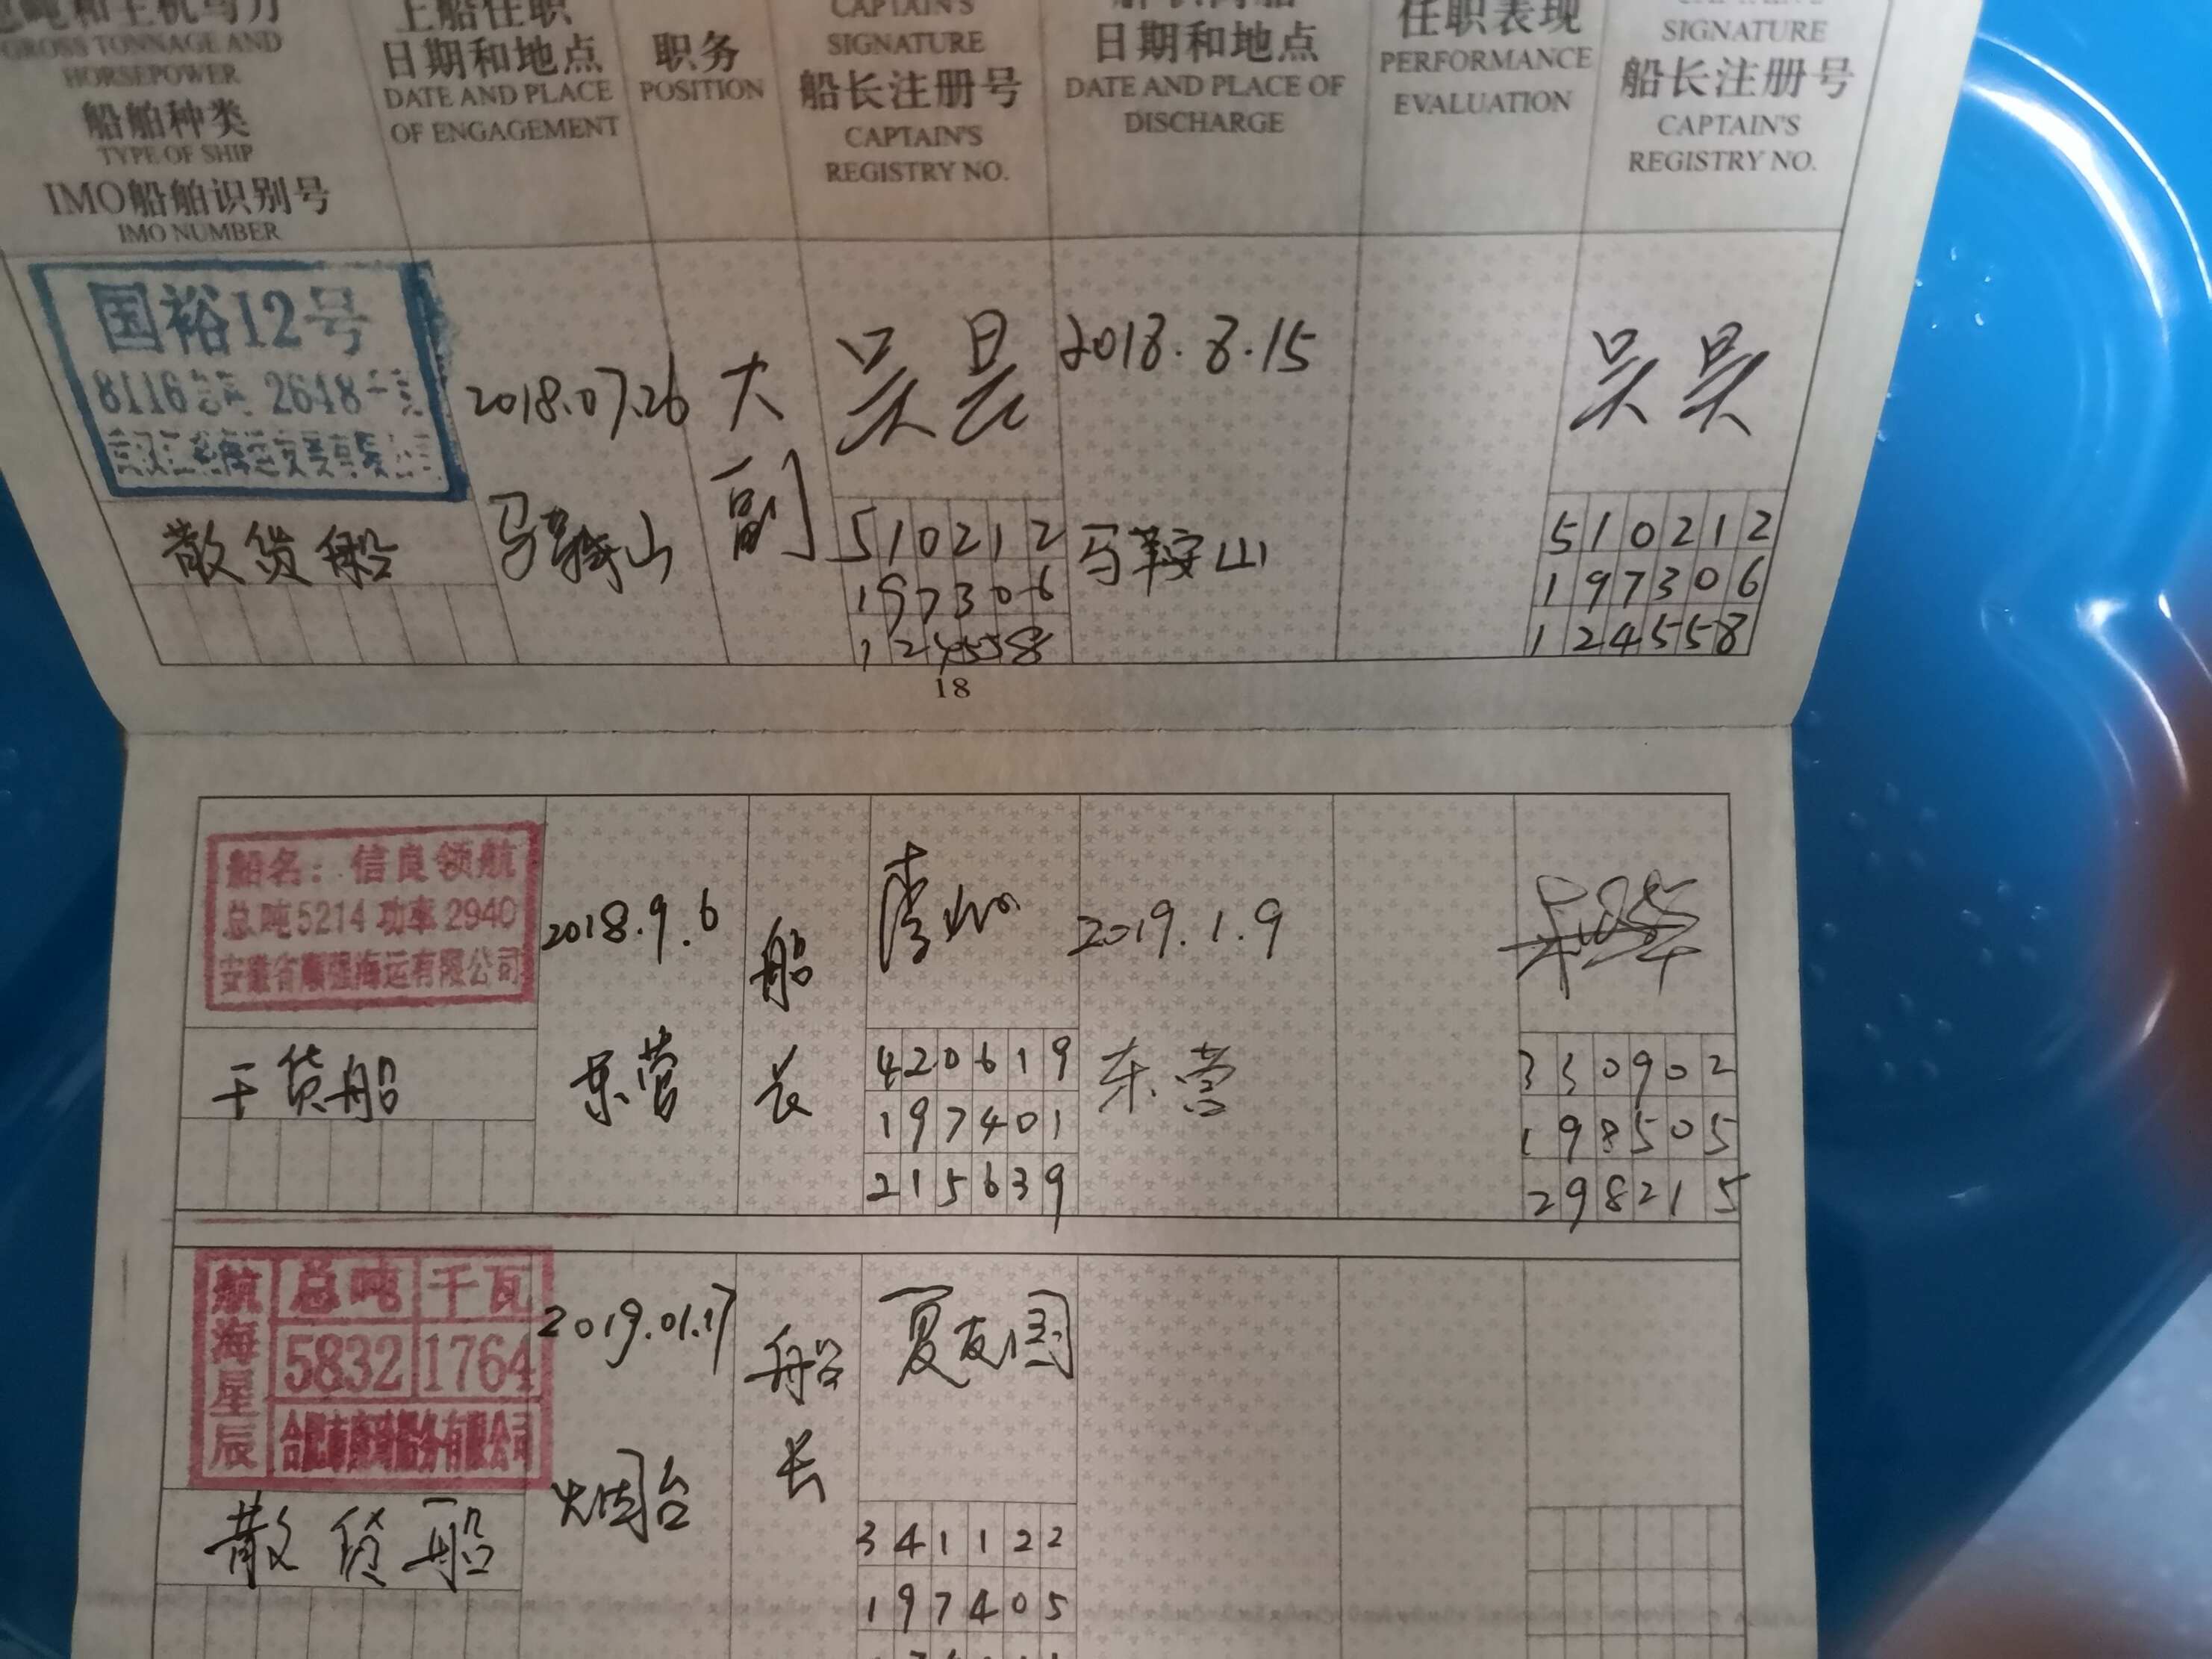 总吨和主机马力
GROSS TONNAGE AND
HORSEPOWER
船舶种类
TYPE OF SHIP
IMO船舶识别号
IMO NUMBER
上船任职
日期和地点
DATE AND PLACE
OF ENGAGEMENT
职务
POSITION
CAPTAIN'S
SIGNATURE
船长注册号
CAPTAIN'S
REGISTRY NO.
日期和地点
DATE AND PLACE OF
DISCHARGE
任职表现
PERFORMANCE
EVALUATION
CAPTAIN'S
SIGNATURE
船长注册号
CAPTAIN'S
REGISTRY NO.
国裕12号
8116总吨 2648千瓦
散货船
2018.07.26
马鞍山
大副
吴昊
510212
197306
124558
2018.8.15
马鞍山
吴昊
510212
197306
124558
18
船名：信良领航
总吨5214 功率2940
安徽省顺强海运有限公司
干货船
2018.9.6
东营
船长
420619
197401
215639
2019.1.9
东营
330902
198505
298215
航海星辰
总吨 千瓦
5832 1764
散货船
2019.01.17
烟台
船长
夏友国
341122
197405